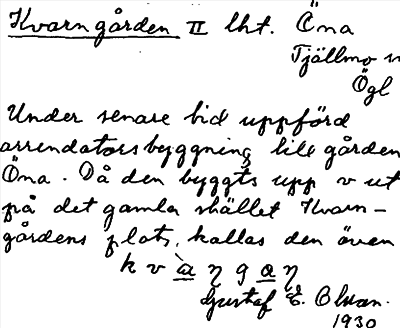 Kvarngården II lht. Öna
Tjällmo
Ögl
Under senare tid uppförd
arrendatorsbyggning till gården
Öna. Då den byggts upp
på det gamla stället Kvarn-
gårdens plats, kallas den även
kvàŋgaŋ
Gustaf E. Olsson.
1930